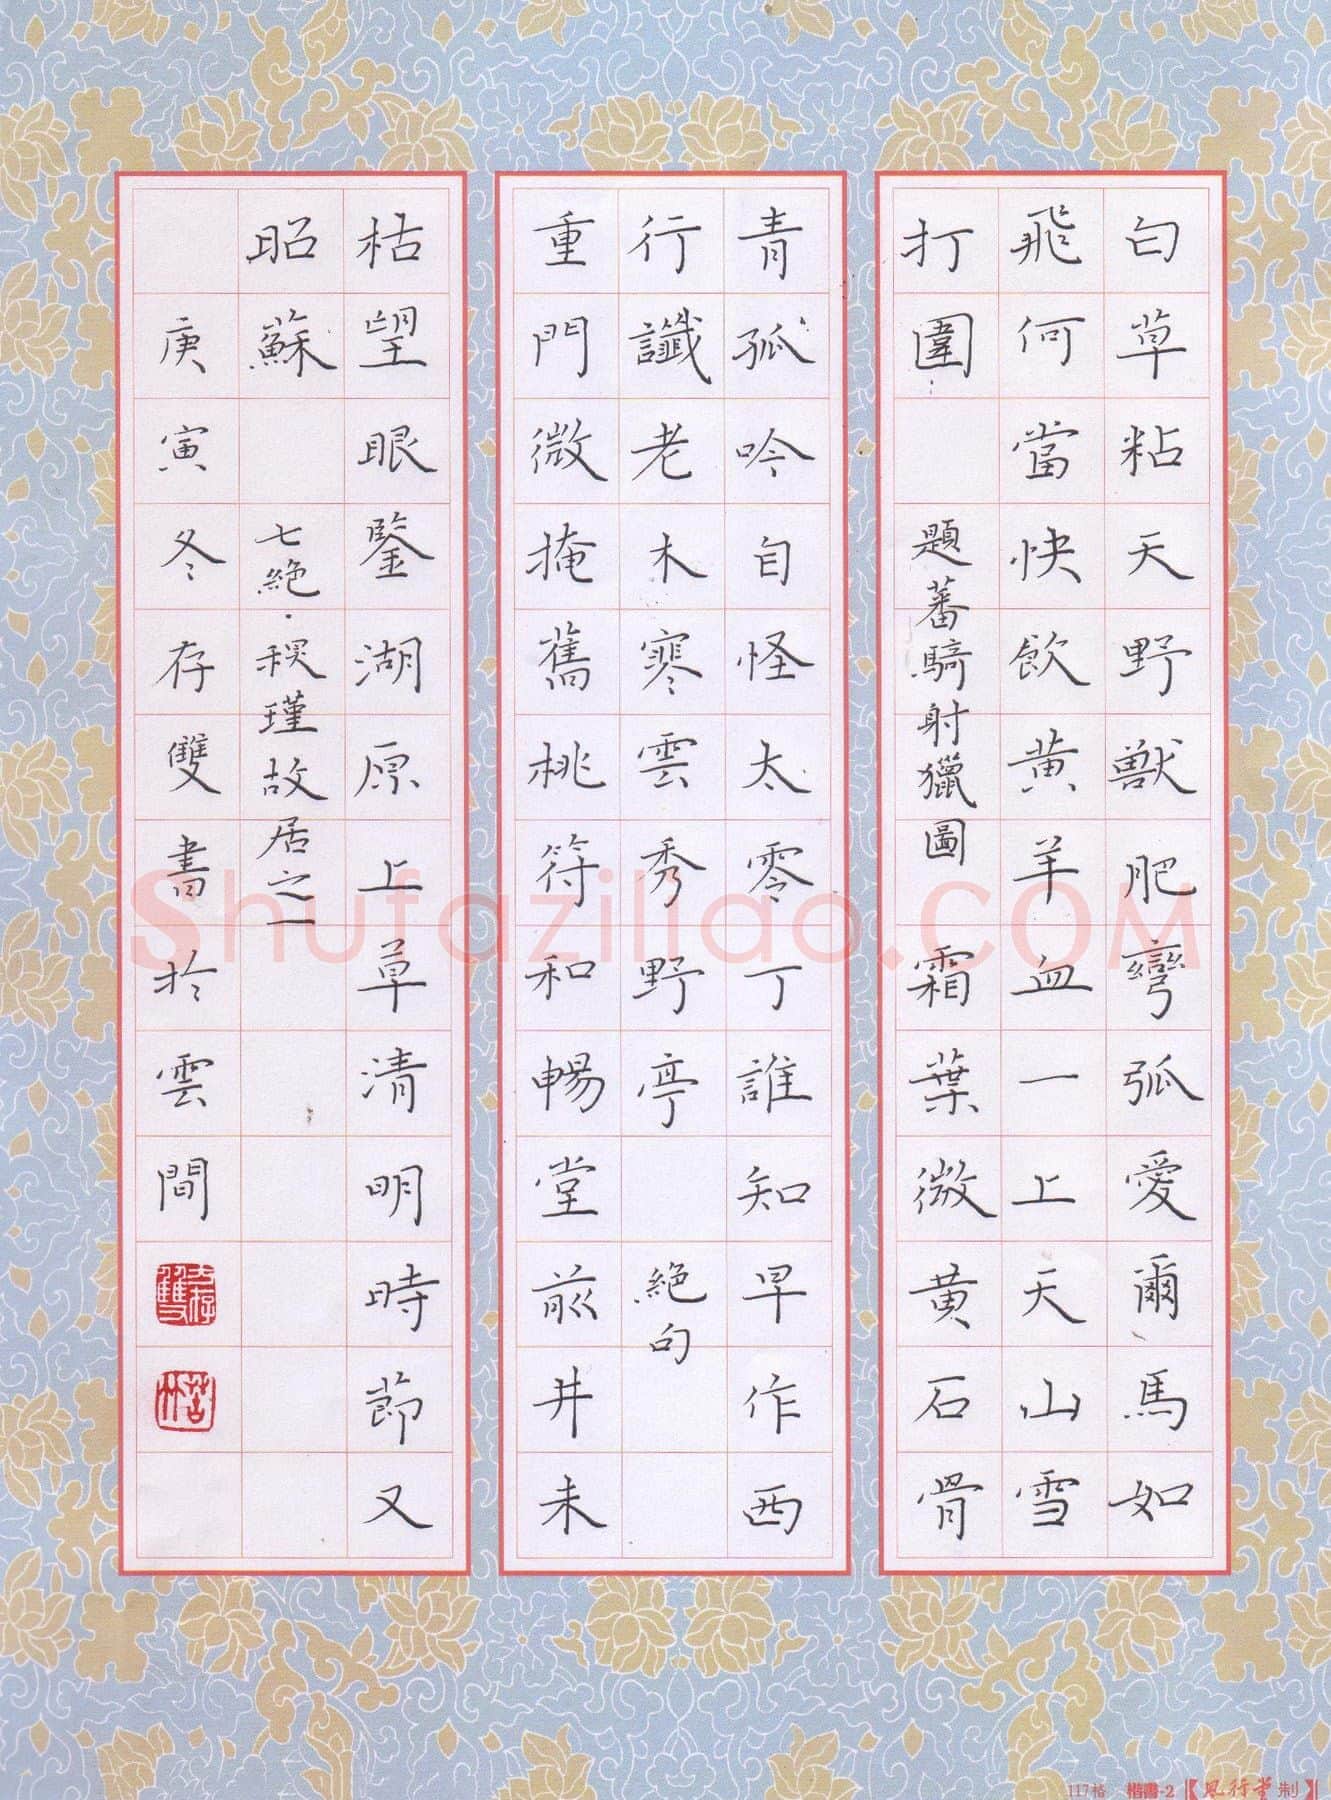 白草粘天野獸肥彎弧愛爾馬如
飛何當快飲黃羊血一上天山雪
打圍 題蕃騎射獵圖 霜葉微黃石骨
青孤吟自怪太零丁誰知早作西
行讖老木寒雲秀野亭 絕句
重門微掩舊桃符和暢堂前井未
枯望眼鑒湖原上草清明時節又
昭蘇 七絕·秋瑾故居之一
庚寅冬存雙書於雲間
Shufaziliao.COM
117格 楷書-2【風行堂制】